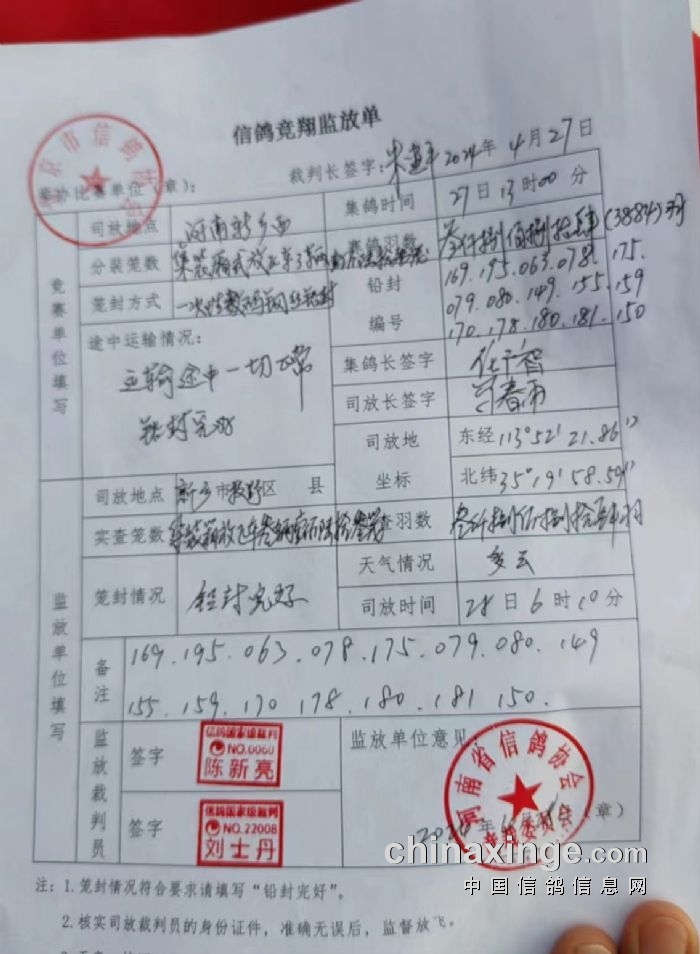 信鸽竞翔监放单
裁判长签字: 2024年4月27日
京市信鸽协会
参加比赛单位(章):
竞赛单位填写
司放地点 河南新乡西 集鸽时间 27日13时00分
分装笼数 集鸽羽数 叁仟捌佰捌拾肆(3884)羽
笼封方式 铅封编号 169.195.063.078.175.
079.080.149.155.159
170.178.180.181.150
途中运输情况:
运输途中一切正常
铅封完好
集鸽长签字
司放长签字
司放地坐标 东经113°52′21.86″
北纬35°19′58.59″
监放单位填写
司放地点 新乡市牧野区 县
实查笼数 实查羽数 叁仟捌佰捌拾肆羽
笼封情况 铅封完好 天气情况 多云
司放时间 28日6时10分
备注 169.195.063.078.175.079.080.149
155.159.170.178.180.181.150.
监放裁判员
签字 信鸽国家级裁判
NO.0060
陈新亮
签字 信鸽国家级裁判
NO.22008
刘士丹
监放单位意见
河南省信鸽协会
竞赛委员会
2024年 (章)
注:1.笼封情况符合要求请填写“铅封完好”。
2.核实司放裁判员的身份证件,准确无误后,监督放飞。
chinaxinge.com
中国信鸽信息网